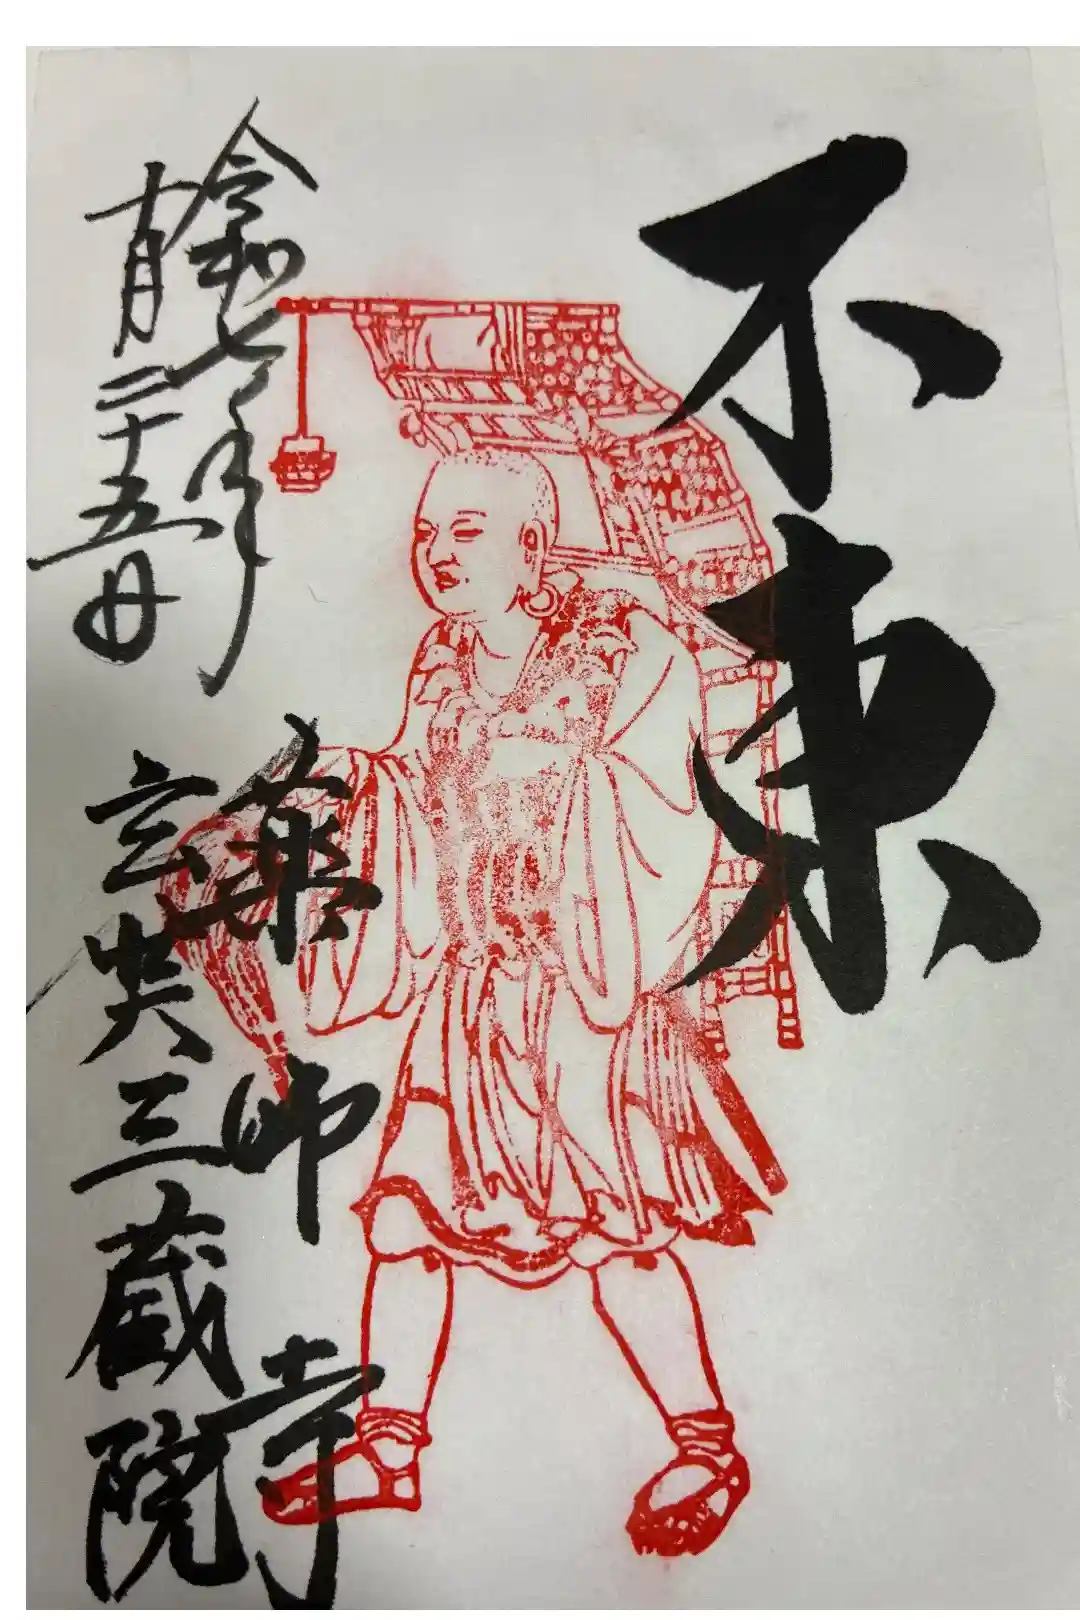 不東
令和七年
十月二十五日
薬師寺
玄奘三蔵院